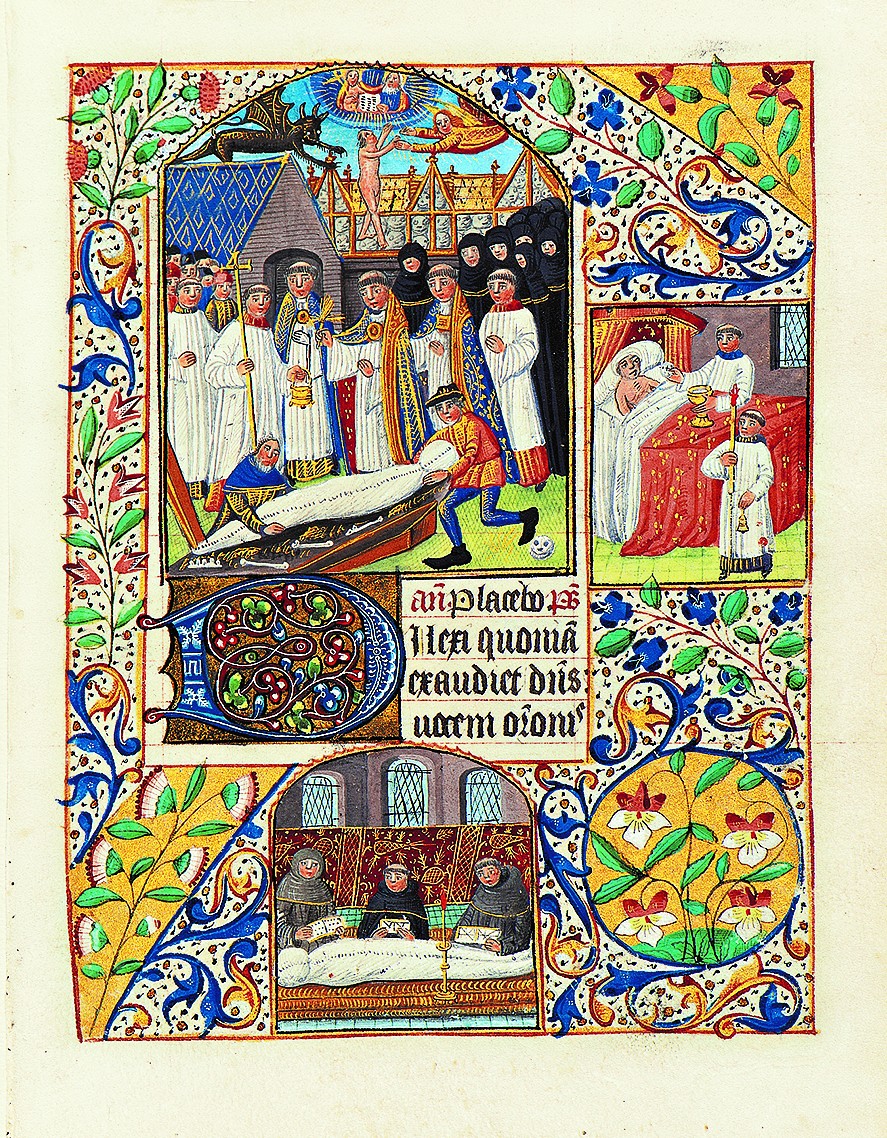 añ Placebo p̃s
DIlexi quoniã
exaudiet dñs:
uocem orõniˢ